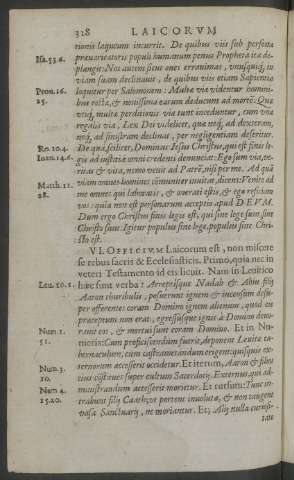 318 LAICORVM
tionis laqueum incurrit. De quibus viis sub persona
Isa. 53. 6. præuaricatoris populi humanum genus Propheta ita de-
plangit: Nos autem sicut oues errauimus, vnusquisq́; in
viam suam declinauit, de quibus viis etiam Sapientia
Prou. 16. loquitur per Salomonem: Multæ viæ videntur homini-
25. bus rectæ, & nouissima earum deducunt ad mortẽ. Quæ
vtiq́; multæ perditionis viæ tunc inceduntur, cum vna
regalis via, Lex Dei videlicet, quæ neq́; ad dexteram,
neq́; ad sinistram declinat, per negligentiam deseritur.
Ro. 10. 4. De qua, scilicet, Dominus Iesus Christus, qui est finis le-
Ioan. 14. 6. gis ad iustitiã omni credenti denunciat: Ego sum via, ve-
ritas & vita, nemo venit ad Patrẽ, nisi per me. Ad quã
Matth. 11. viam omnes homines communiter inuitat, dicens: Venite ad
28. me omnes qui laboratis, & onerati estis, & ego reficiam
vos: quia non est personarum acceptio apud DEVM.
Dum ergo Christus finis legis est, qui sine lege sunt, sine
Christo sunt. Igitur populus sine lege, populus sine Chri-
sto est.
VI. OFFICIVM Laicorum est, non miscere
se rebus sacris & Ecclesiasticis. Primo, quia nec in
veteri Testamento id eis licuit. Nam in Leuitico
Leu. 10. 1. hæc sunt verba: Arreptisque Nadab & Abiu filij
Aaron thuribulis, posuerunt ignem & incensum desu-
per offerentes coram Domino ignem alienum, quod eis
præceptum non erat; egressusque ignis à Domino deuo-
Num 1. rauit eos, & mortui sunt coram Domino. Et in Nu-
51. meris: Cum proficiscendum fuerit, deponent Leuitæ ta-
bernaculum, cum castrametandum erigent: quisquis ex-
Num 3. ternorum accesserit occidetur. Et iterum, Aaron & filios
10. eius constitues super cultum Sacerdotij. Externus qui ad
Num 4. ministrandum accesserit morietur. Et rursum: Tunc in-
15. 20. trabunt filij Caath vt portent inuoluta, & non tangent
vasa Sanctuarij, ne moriantur. Et; Alij nulla curiosi-